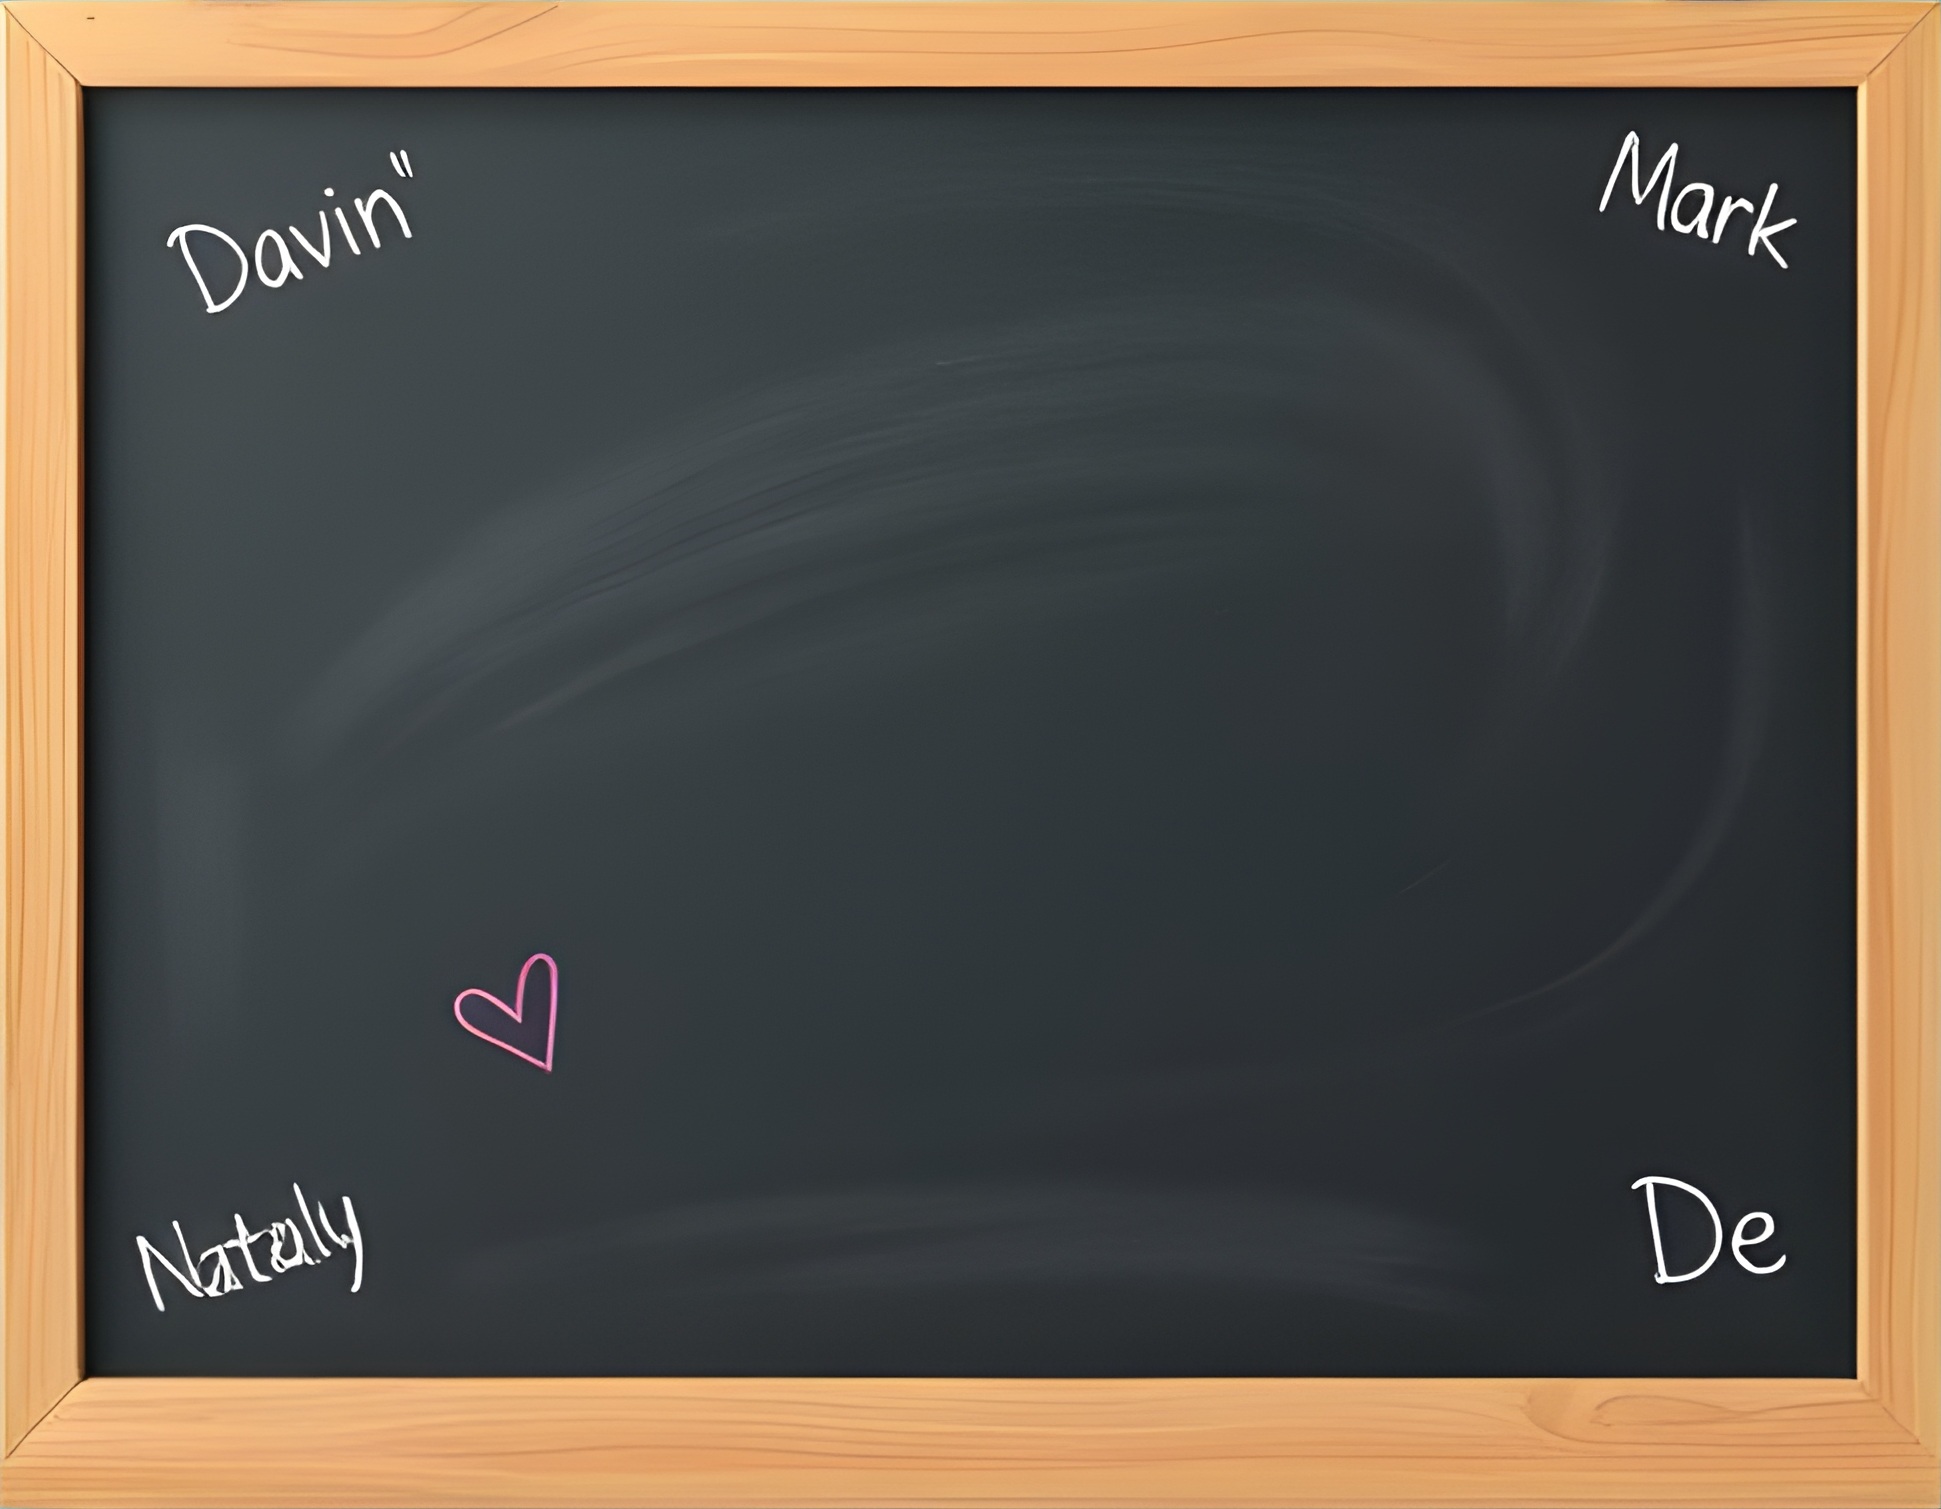 Davin"
Mark
Nataly
De